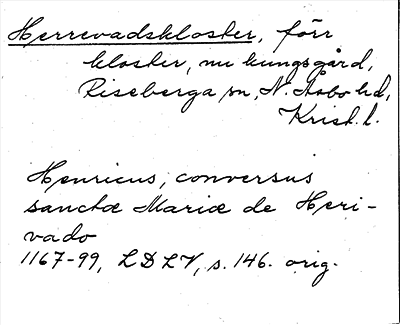 Herrevadskloster, förr
kloster, nu kungsgård,
Riseberga sn, N. Åsbo hd,
Krist. l.
Henricus, conversus
sanctæ Mariæ de Heri-
vado
1167-99, LDLV, s. 146. orig.